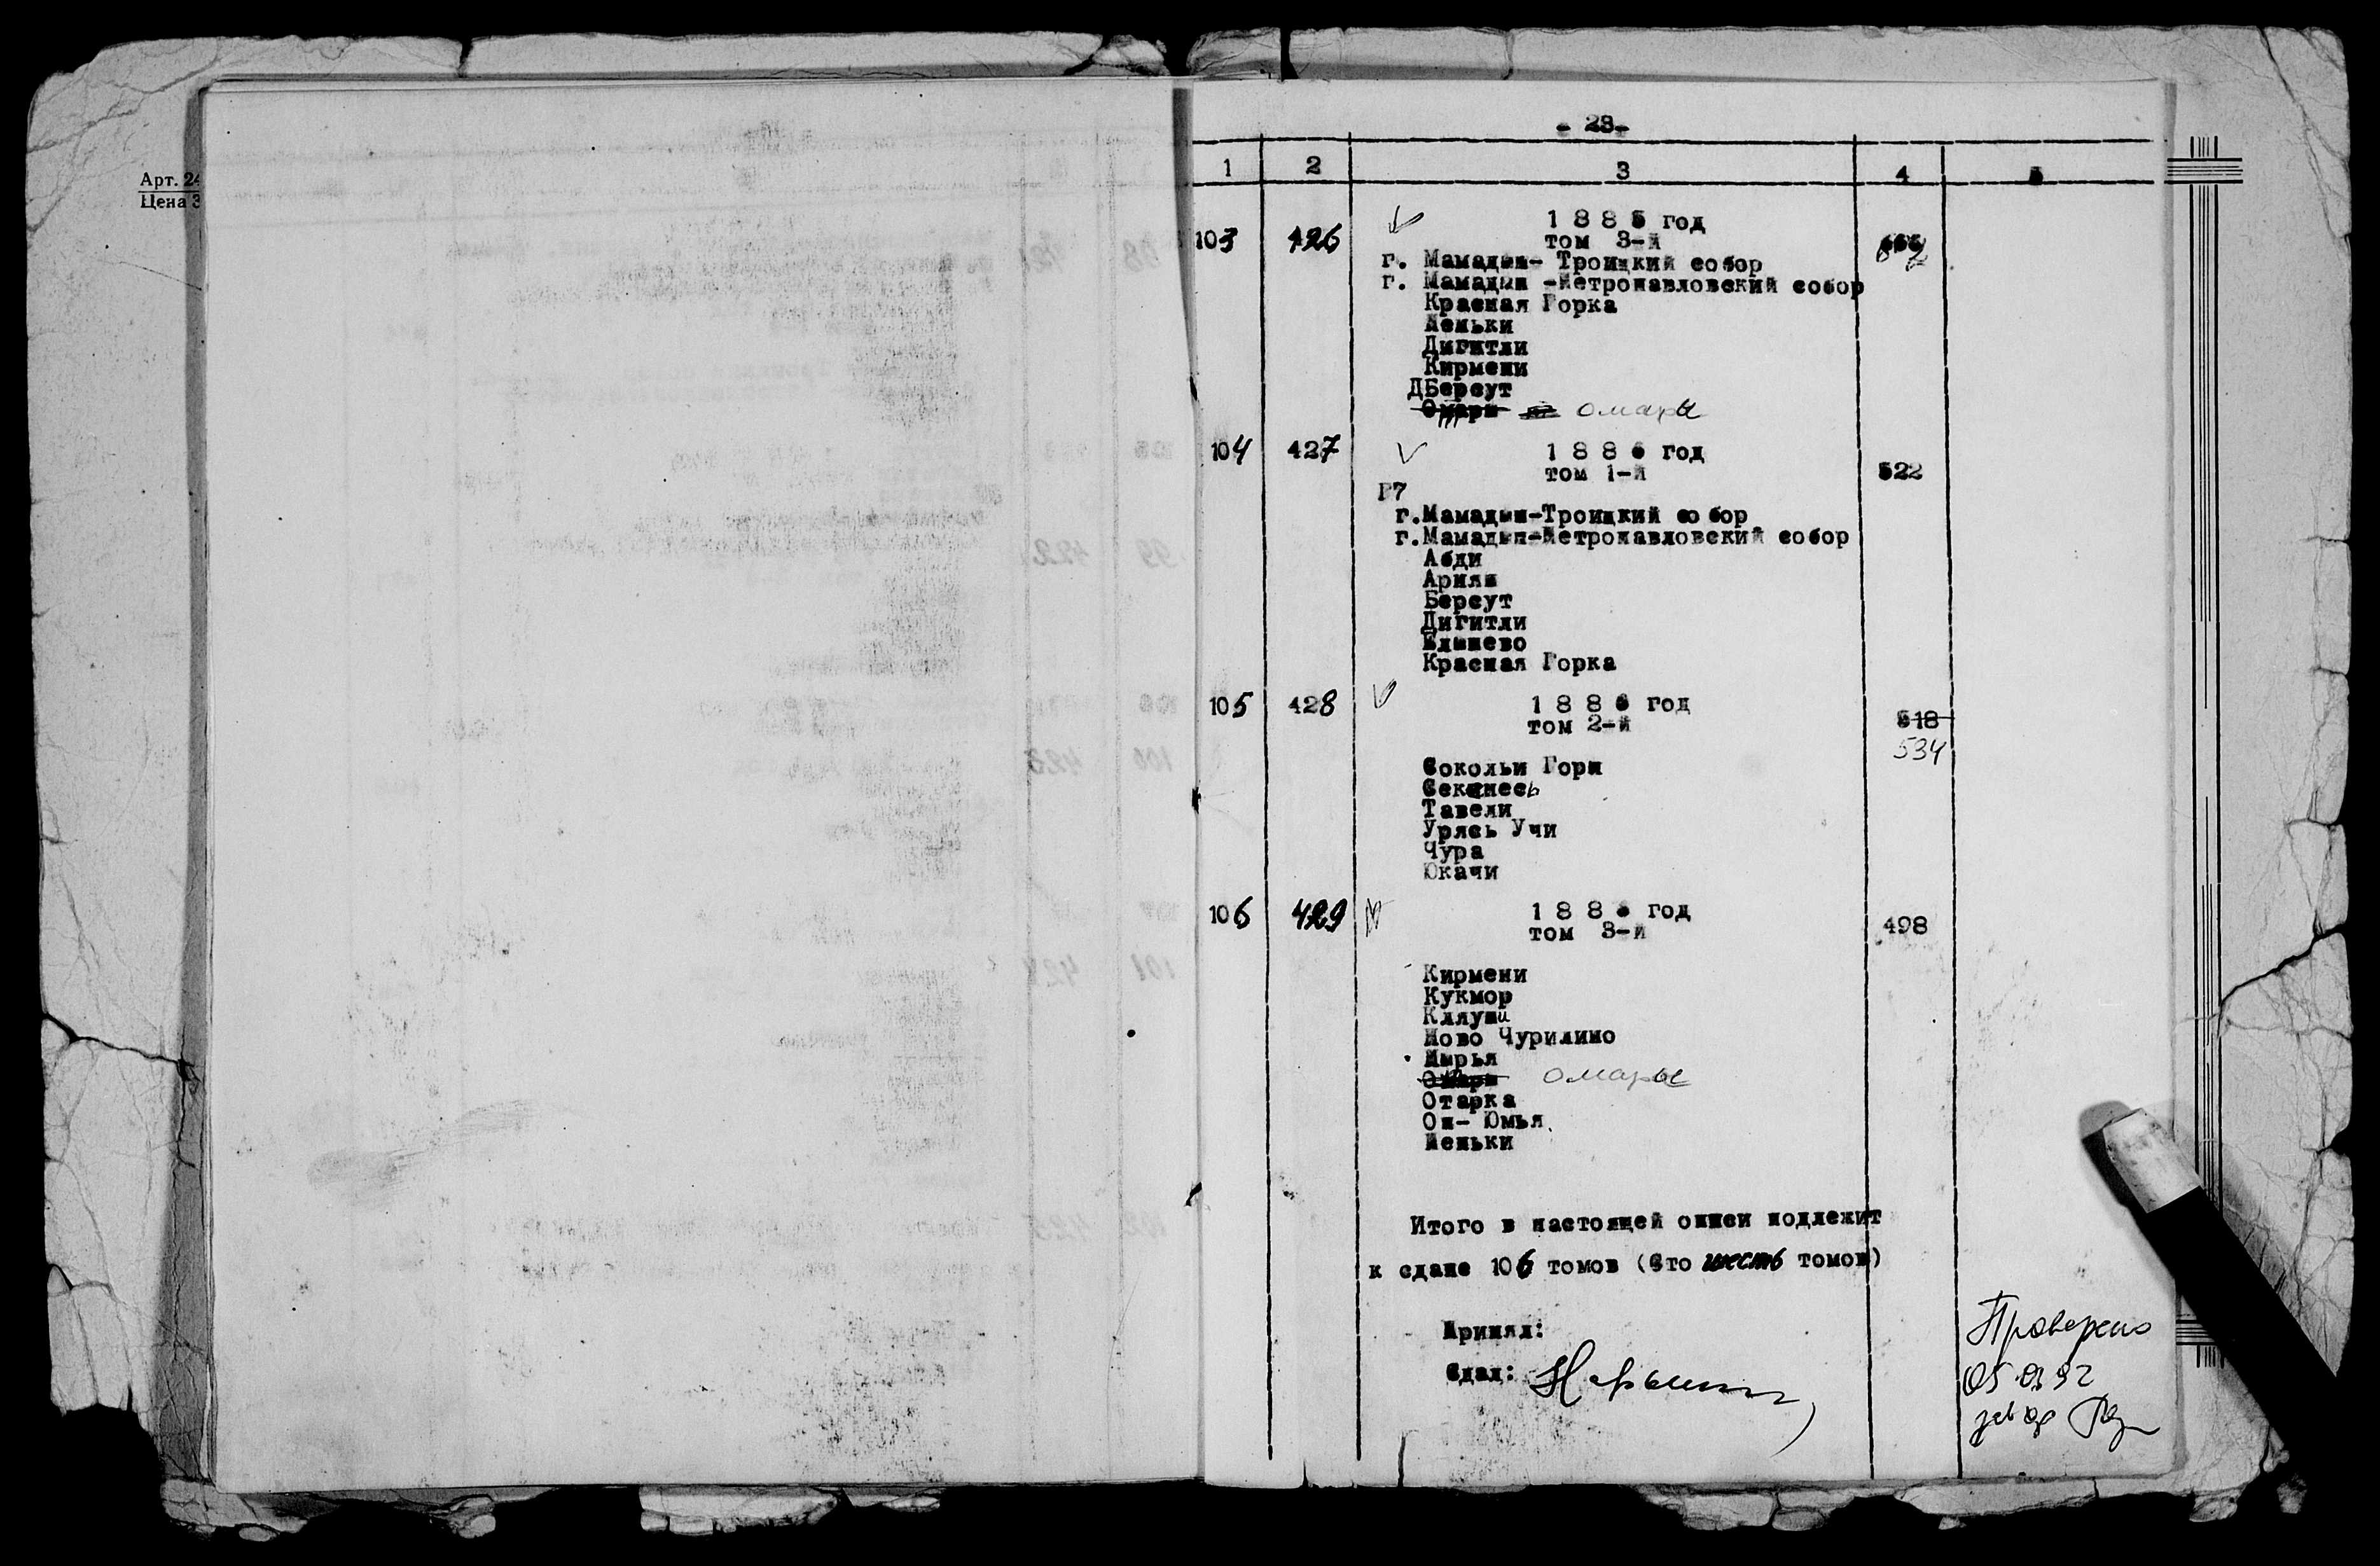 Арт. 24
Цена 3
- 28-
1 2 3 4 5
103 426 1 8 8 5 год
том 3-й
662
г. Мамадыш- Троицкий собор
г. Мамадыш -Петропавловский собор
Красная Горка
Пеньки
Дигитли
Кирмени
ДБерсут
Омары омары
104 427 1 8 8 6 год
том 1-й 522
Г7
г.Мамадыш-Троицкий со бор
г.Мамадыш-Петропавловский собор
Абди
Арняш
Берсут
Дигитли
Елышево
Красная Горка
105 428 1 8 8 6 год
том 2-й 518
534
Сокольи Горы
Секенесь
Тавели
Урясь Учи
Чура
Юкачи
106 429 1 8 8 6 год
том 3-й 498
Кирмени
Кукмор
Кляуши
Ново Чурилино
Нырья
Омары омары
Отарка
Ош- Юмья
Пеньки
Итого в настоящей описи подлежит
к сдаче 106 томов (Сто шесть томов)
Принял:
Сдал:
Проверено
05.03.92